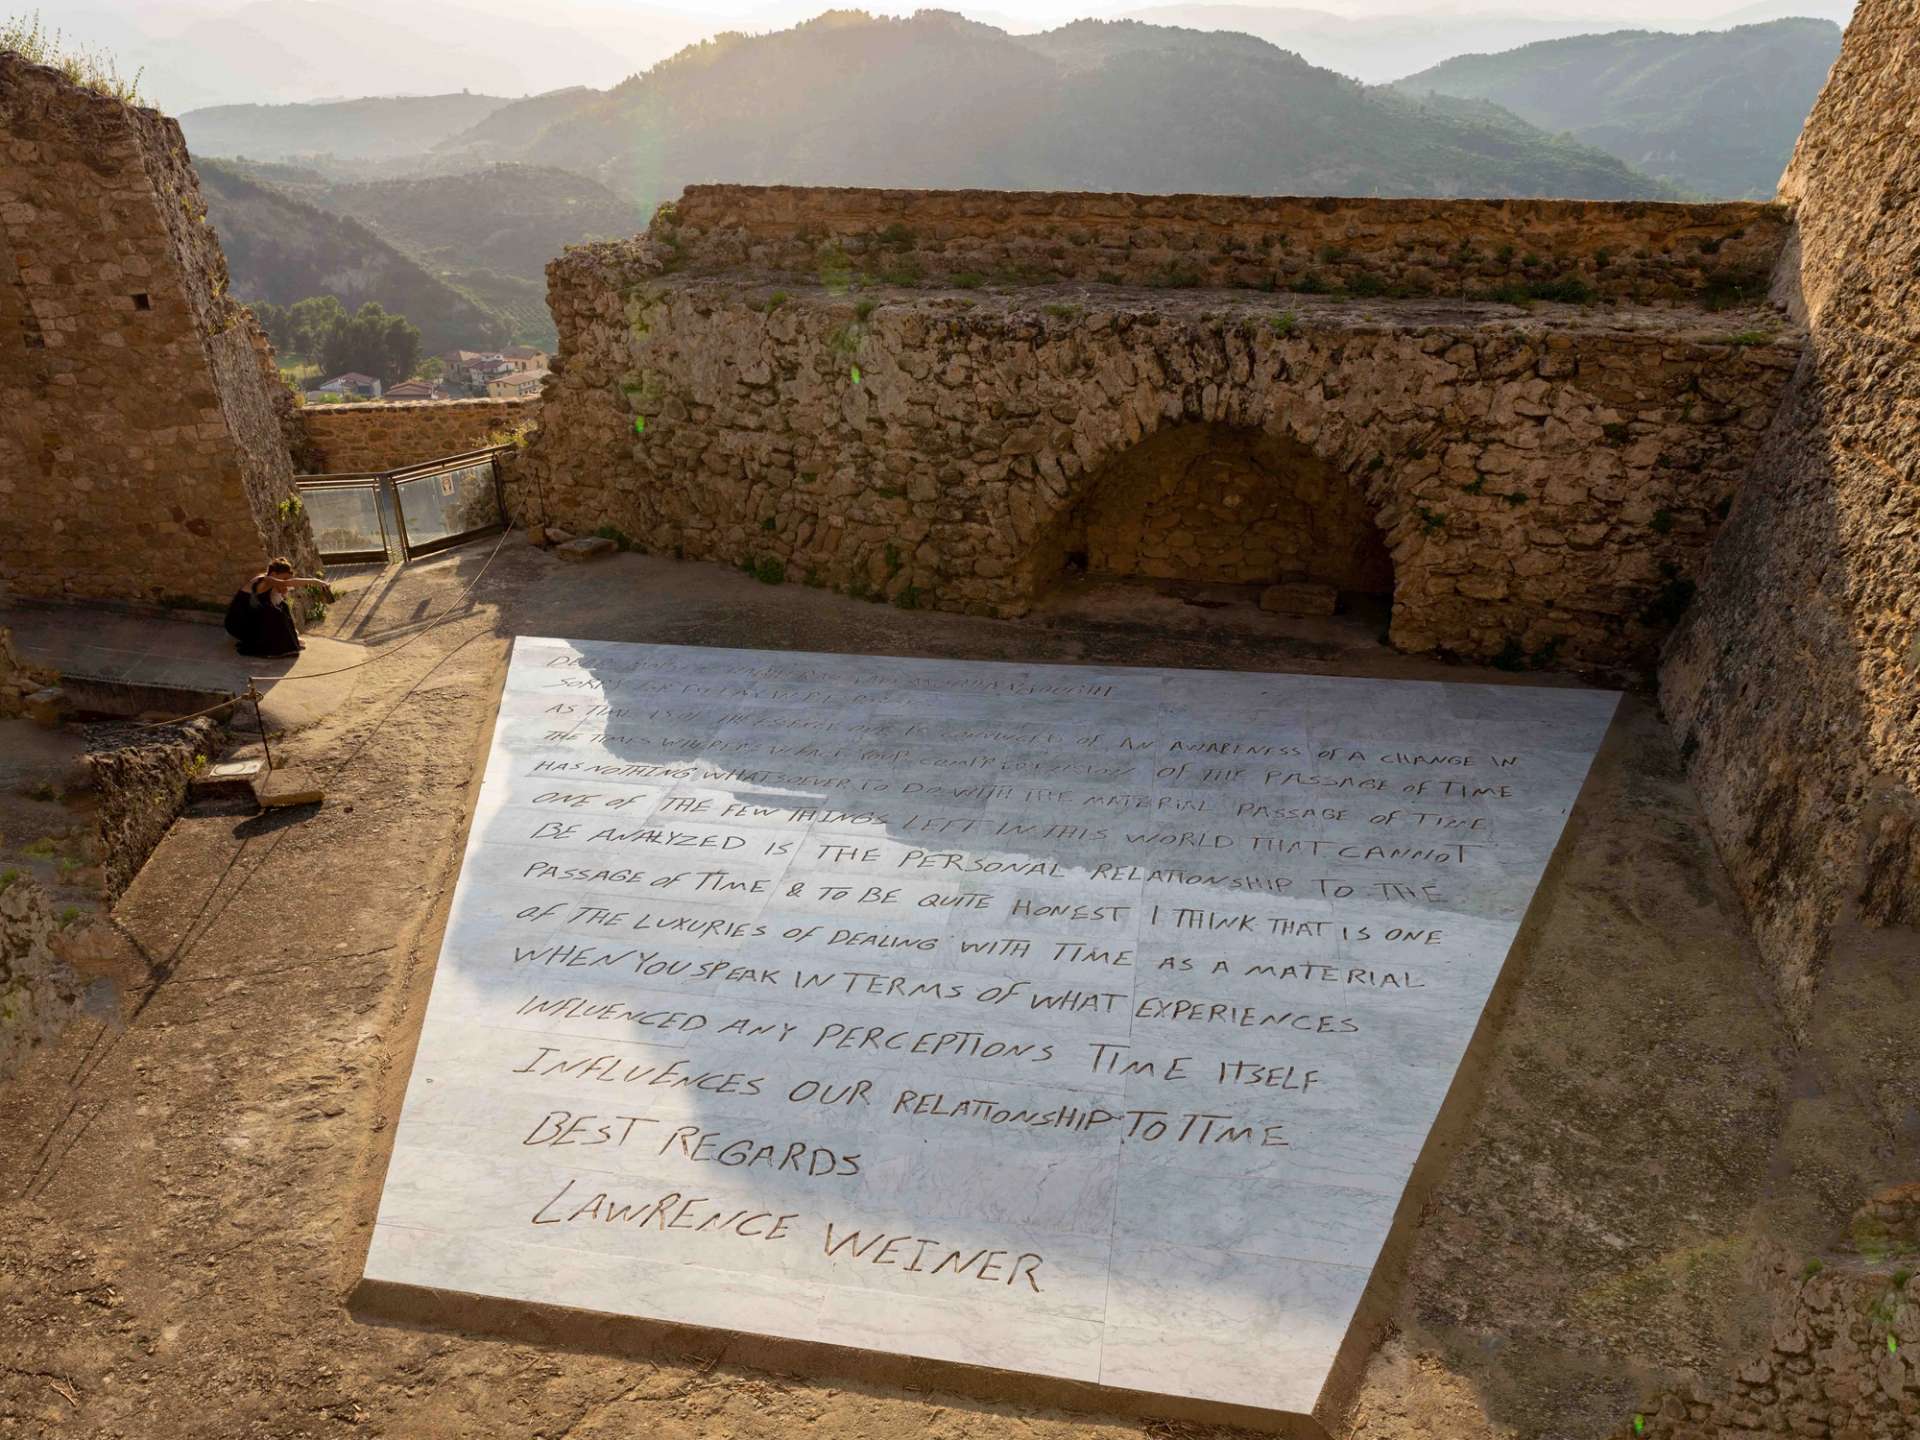 DEAR
SORRY FOR
AS TIME IS OF THE ESSENCE ONE IS CONVINCED OF AN AWARENESS OF A CHANGE IN
THE TIMES WHEREAS IN FACT YOUR COMPREHENSION OF THE PASSAGE OF TIME
HAS NOTHING WHATSOEVER TO DO WITH THE MATERIAL PASSAGE OF TIME
ONE OF THE FEW THINGS LEFT IN THIS WORLD THAT CANNOT
BE ANALYZED IS THE PERSONAL RELATIONSHIP TO THE
PASSAGE OF TIME & TO BE QUITE HONEST I THINK THAT IS ONE
OF THE LUXURIES OF DEALING WITH TIME AS A MATERIAL
WHEN YOU SPEAK IN TERMS OF WHAT EXPERIENCES
INFLUENCED ANY PERCEPTIONS TIME ITSELF
INFLUENCES OUR RELATIONSHIP TO TIME
BEST REGARDS
LAWRENCE WEINER